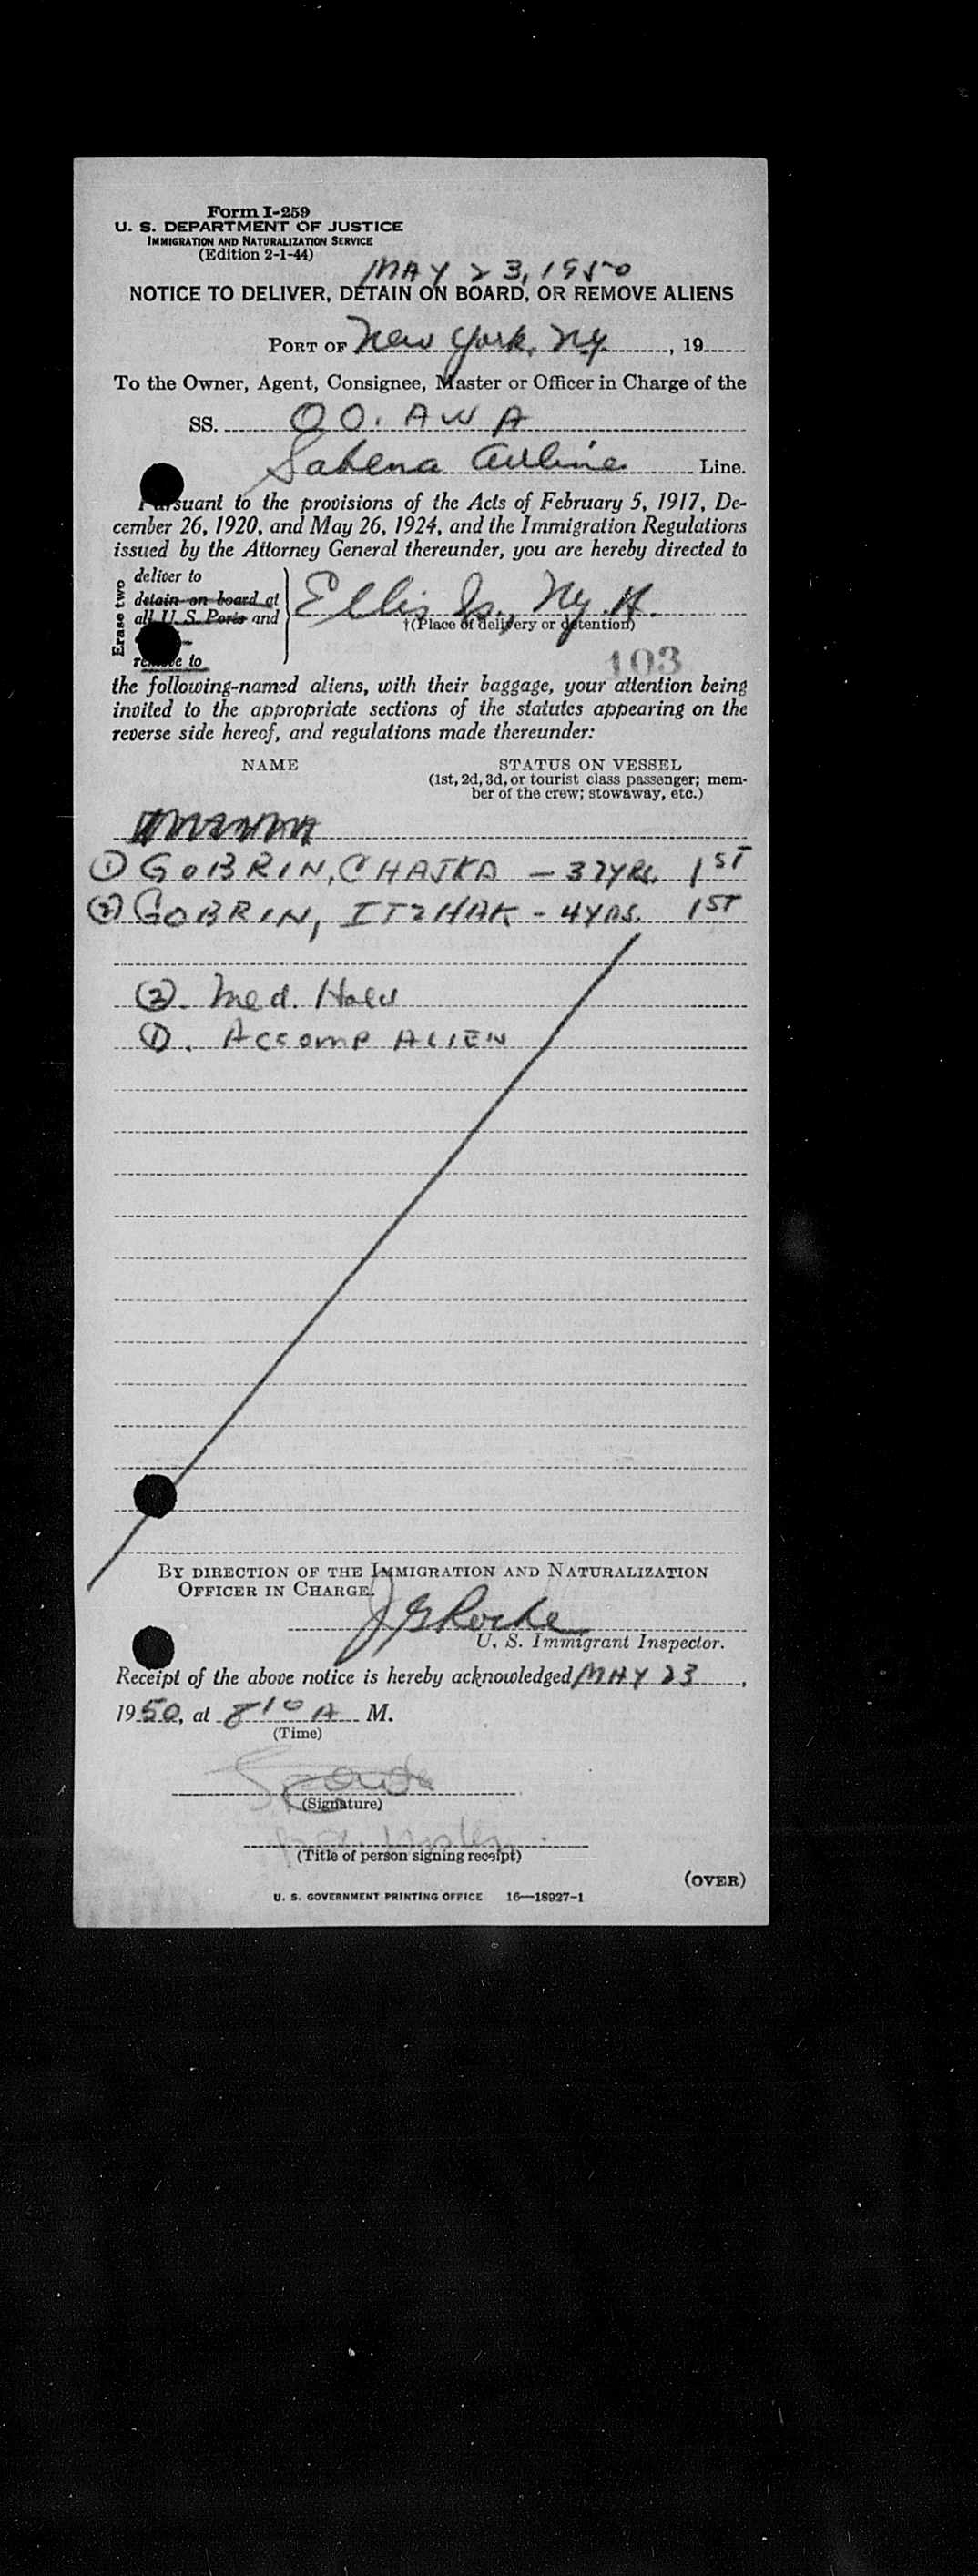 Form I-259
U. S. DEPARTMENT OF JUSTICE
IMMIGRATION AND NATURALIZATION SERVICE
(Edition 2-1-44)
MAY 23, 1950
NOTICE TO DELIVER, DETAIN ON BOARD, OR REMOVE ALIENS
PORT OF New York, Ny, 19
To the Owner, Agent, Consignee, Master or Officer in Charge of the
SS. OO. AWA
Sabena Airline Line.
Pursuant to the provisions of the Acts of February 5, 1917, De-
cember 26, 1920, and May 26, 1924, and the Immigration Regulations
issued by the Attorney General thereunder, you are hereby directed to
Erase two
deliver to
detain on board at
all U. S. Ports and
remove to
Ellis Is., Ny. H.
†(Place of delivery or detention)
103
the following-named aliens, with their baggage, your attention being
invited to the appropriate sections of the statutes appearing on the
reverse side hereof, and regulations made thereunder:
NAME STATUS ON VESSEL
(1st, 2d, 3d, or tourist class passenger; mem-
ber of the crew; stowaway, etc.)
① GOBRIN, CHAJKA - 37YRS. 1ST
② GOBRIN, ITZHAK - 4YRS. 1ST
②. Med. Hold
①. ACCOMP ALIEN
BY DIRECTION OF THE IMMIGRATION AND NATURALIZATION
OFFICER IN CHARGE.
J G Roche
U. S. Immigrant Inspector.
Receipt of the above notice is hereby acknowledged MAY 23,
1950, at 810 A M.
(Time)
(Signature)
(Title of person signing receipt)
(OVER)
U. S. GOVERNMENT PRINTING OFFICE 16—18927-1